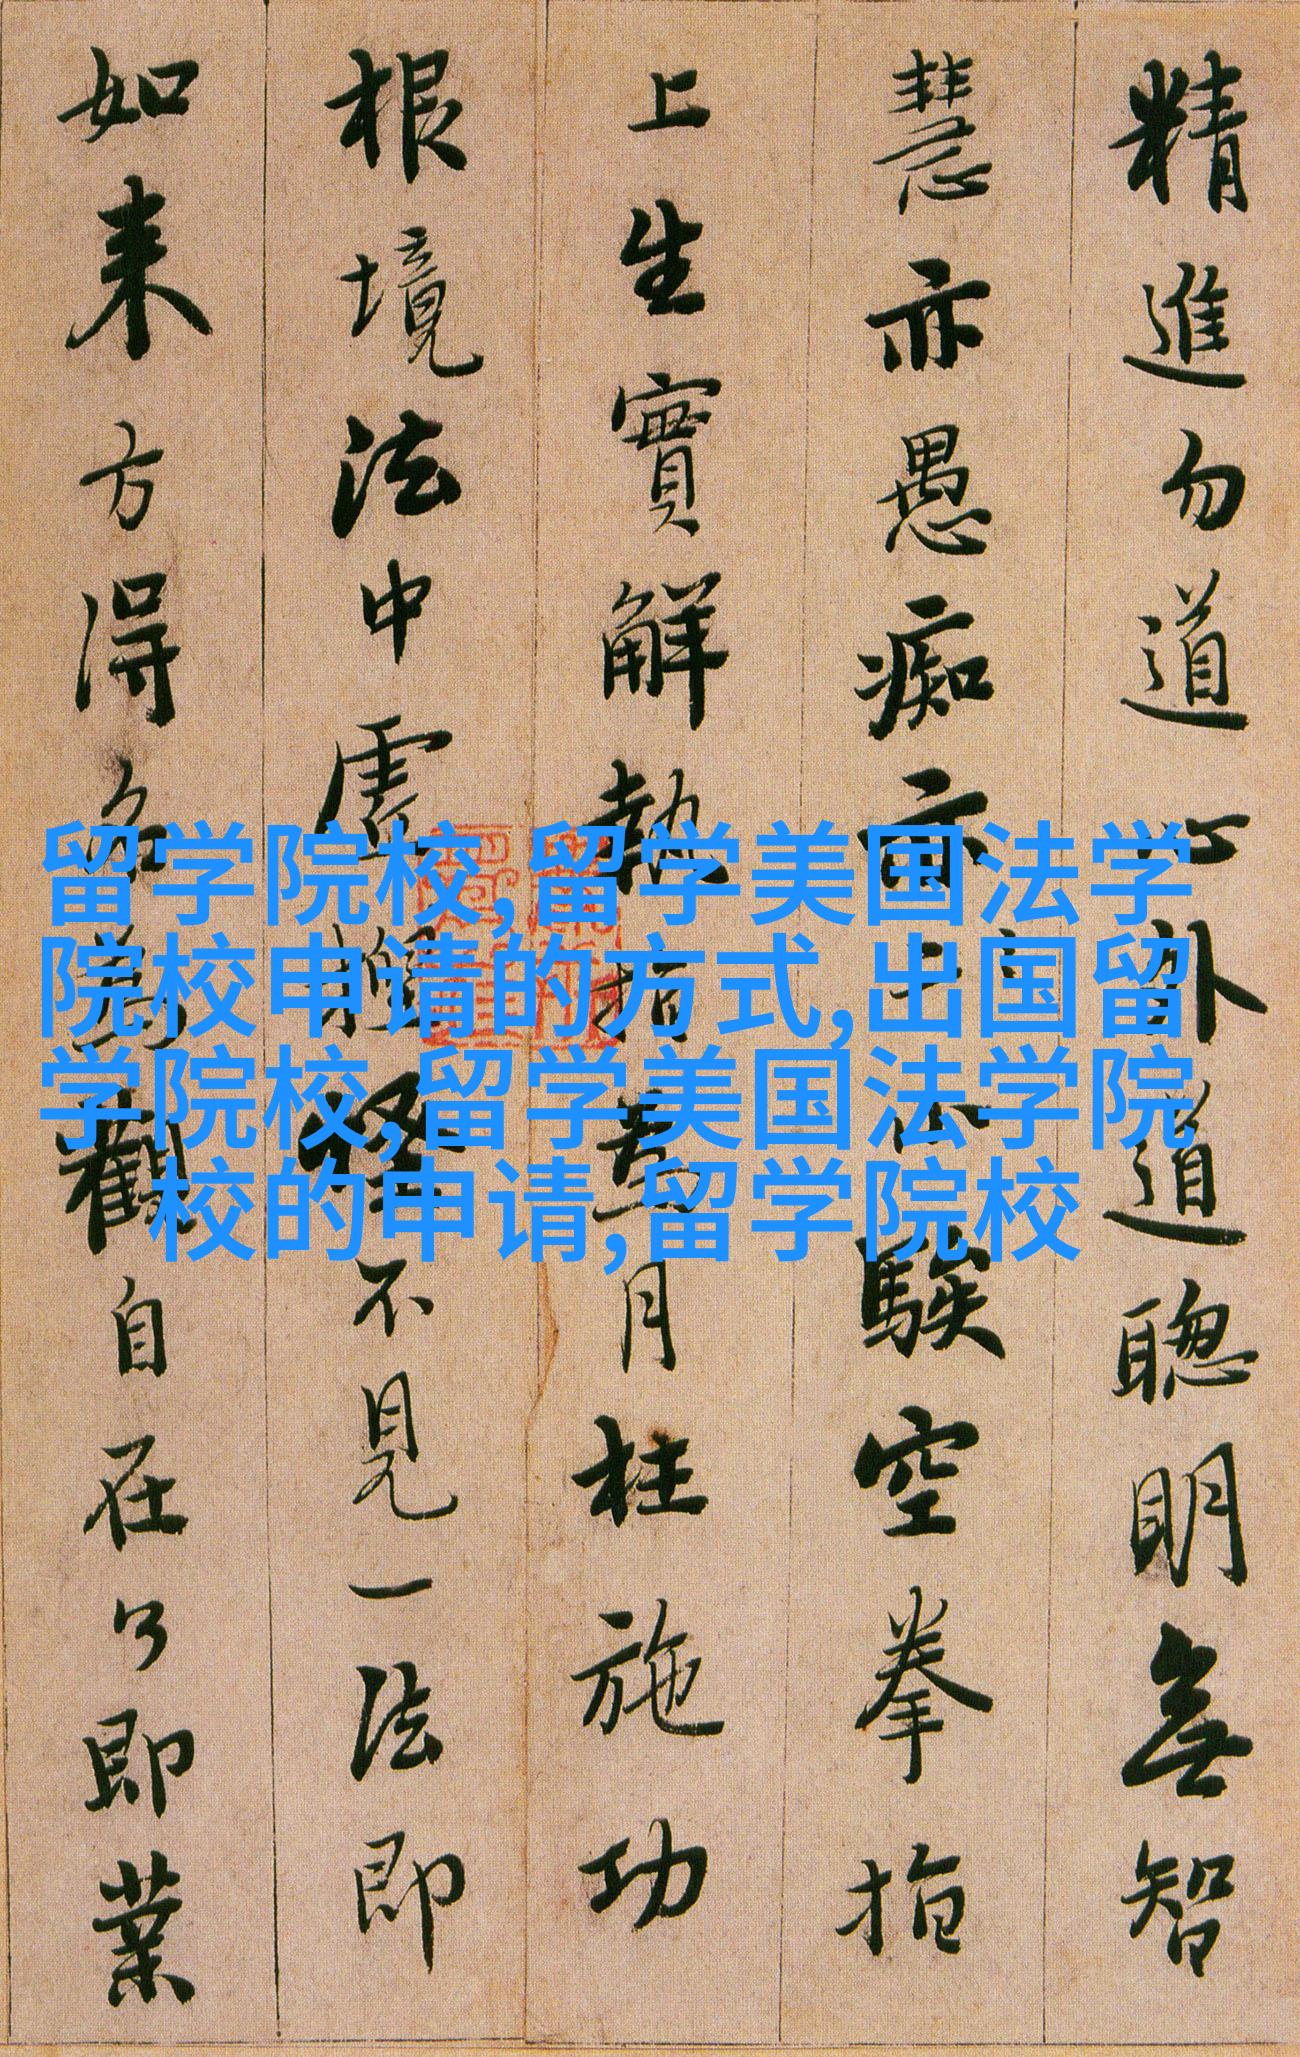 精進勿道心外道聰明無智
慧亦愚癡亦小騃空拳指
上生實解執指為月枉施功
根境法中虛捏怪不見一法即
如来方得名為觀自在了即業
留学院校,留学美国法学
院校申请的方式,出国留
学院校,留学美国法学院
校的申请,留学院校